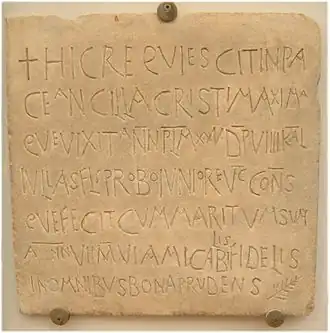 + HIC REQVIESCIT IN PA
CE ANCILLA CRISTI MAXIMA
QVE VIXIT ANN PLM XXV DP VIIII KAL
IVLIAS FL PROBO IVNIORE VC CONS
QVE FECIT CVM MARITVM SVVM
ANN VII M VI AMICABILIS FIDELIS
IN OMNIBVS BONA PRVDENS